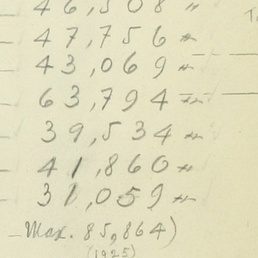 46,508 "
47,756 "
43,069 "
63,794 "
39,534 "
41,860 "
31,059 "
Max. 85,864)
(1925)